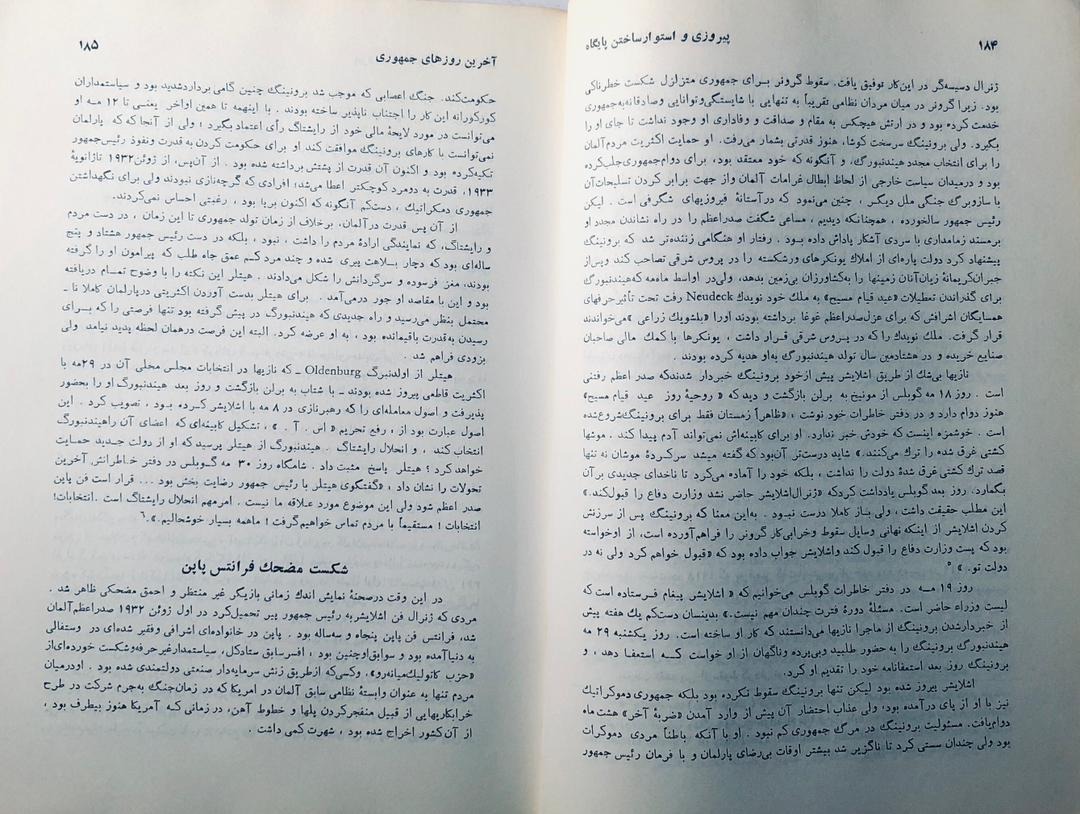 ۱۸۴
پیروزی و استوارساختن پایگاه
ژنرال دسیسه‌گر در این‌کار توفیق یافت. سقوط گرونر برای جمهوری متزلزل شکست خطرناکی
بود. زیرا گرونر در میان مردان نظامی تقریباً به تنهایی با شایستگی‌وتوانایی وصادقانه‌به‌جمهوری
خدمت کرده بود و در ارتش هیچکس به مقام و صداقت و وفاداری او وجود نداشت تا جای او را
بگیرد. ولی برونینگ سرسخت کوشا، هنوز قدرتی بشمار می‌رفت. او حمایت اکثریت مردم‌آلمان
را برای انتخاب مجدد هیندنبورگ، و آنگونه که خود معتقد بود، برای دوام‌جمهوری‌جلب‌کرده
بود و درمیدان سیاست خارجی از لحاظ ابطال غرامات آلمان واز جهت برابر کردن تسلیحات‌آن
با سازوبرگ جنگی ملل دیگر، چنین می‌نمود که درآستانهٔ فیروزیهای شگرفی است. لیکن
رئیس جمهور سالخورده، همچنانکه دیدیم، مساعی شگفت صدراعظم را در راه نشاندن مجدد او
برمسند زمامداری با سردی آشکار پاداش داده بود. رفتار او هنگامی زننده‌تر شد که برونینگ
پیشنهاد کرد دولت پاره‌ای از املاک یونکرهای ورشکسته را در پروس شرقی تصاحب کند وپس‌از
جبران‌کریمانهٔ زیان‌آنان زمینها را به‌کشاورزان بی‌زمین بدهد، ولی‌در اواسط ماه‌مه که‌هیندنبورگ
برای گذراندن تعطیلات «عید قیام مسیح» به ملک خود نویدک Neudeck رفت تحت تأثیرحرفهای
همسایگان اشرافش که برای عزل‌صدراعظم غوغا برداشته بودند اورا «بلشویک زراعی» می‌خواندند
قرار گرفت. ملک نویدک را که در پروس شرقی قرار داشت، یونکرها با کمک مالی صاحبان
صنایع خریده و در هشتادمین سال تولد هیندنبورگ به‌او هدیه کرده بودند.
نازیها بی‌شک از طریق اشلایشر پیش ازخود برونینگ خبردار شدندکه صدر اعظم رفتنی
است. روز ۱۸ مه گوبلس از مونیخ به برلن بازگشت و دید که «روحیهٔ روز عید قیام مسیح»
هنوز دوام دارد و در دفتر خاطرات خود نوشت، «ظاهراً زمستان فقط برای برونینگ‌شروع‌شده
است. خوشمزه اینست که‌خودش خبر ندارد. او برای کابینه‌اش نمی‌تواند آدم پیدا کند. موشها
کشتی غرق شده را ترک می‌کنند.» شاید درست‌تر آن‌بود که‌گفته میشد سرکردهٔ موشان نه تنها
قصد ترک کشتی غرق شدهٔ دولت را نداشت، بلکه خود را آماده می‌کرد تا ناخدای جدیدی برآن
بگمارد. روز بعد گوبلس یادداشت کردکه «ژنرال‌اشلایشر حاضر نشد وزارت دفاع را قبول‌کند.»
این مطلب حقیقت داشت، ولی باز کاملا درست نبود. به‌این معنا که برونینگ پس از سرزنش
کردن اشلایشر از اینکه نهانی وسایل سقوط وخرابی‌کار گرونر را فراهم‌آورده است، از اوخواسته
بود که پست وزارت دفاع را قبول کند واشلایشر جواب داده بود که «قبول خواهم کرد ولی نه در
دولت تو.» ۵
روز ۱۹ مه در دفتر خاطرات گوبلس می‌خوانیم که «اشلایشر پیغام فرستاده است که
لیست وزراء حاضر است. مسئلهٔ دورهٔ فترت چندان مهم نیست.» بدینسان دست‌کم یک هفته پیش
از خبردارشدن برونینگ از ماجرا نازیها می‌دانستند که کار او ساخته است. روز یکشنبه ۲۹ مه
هیندنبورگ برونینگ را به حضور طلبید دبی‌پرده وناگهان از او خواست که استعفا دهد، و
برونینگ روز بعد استعفانامه خود را تقدیم او کرد.
اشلایشر پیروز شده بود لیکن تنها برونینگ سقوط نکرده بود بلکه جمهوری دموکراتیک
نیز با او از پای درآمده بود، ولی عذاب احتضار آن پیش از وارد آمدن «ضربهٔ آخر» هشت‌ماه
دوام‌یافت. مسئولیت برونینگ در مرگ جمهوری کم نبود. او با آنکه باطناً مردی دموکرات
بود ولی چندان سستی کرد تا ناگزیر شد بیشتر اوقات بی‌رضای پارلمان و با فرمان رئیس جمهور
آخرین روزهای جمهوری
۱۸۵
حکومت‌کند. جنگ اعصابی که موجب شد برونینگ چنین گامی بردارد‌شدید بود و سیاستمداران
کورکورانه این کار را اجتناب ناپذیر ساخته بودند. با اینهمه تا همین اواخر یعنی تا ۱۲ مه او
می‌توانست در مورد لایحهٔ مالی خود از رایشتاگ رأی اعتماد بگیرد، ولی از آنجا که‌که پارلمان
نمی‌توانست با کارهای برونینگ موافقت کند او برای حکومت کردن به قدرت ونفوذ رئیس‌جمهور
تکیه‌کرده بود و اکنون آن قدرت از پشتش برداشته شده بود. از آن‌پس، از ژوئن۱۹۳۲ تاژانویهٔ
۱۹۳۳، قدرت به دومرد کوچکتر اعطا می‌شد، افرادی که گرچه‌نازی نبودند ولی برای نگهداشتن
جمهوری دمکراتیک، دست‌کم آنگونه که اکنون برپا بود، رغبتی احساس نمی‌کردند.
از آن پس قدرت در آلمان، برخلاف از زمان تولد جمهوری تا این زمان، در دست مردم
و رایشتاگ، که نمایندگی ارادهٔ مردم را داشت، نبود، بلکه در دست رئیس جمهور هشتاد و پنج
ساله‌ای بود که دچار بلاهت پیری شده و چند مرد کم عمق جاه طلب که پیرامون او را گرفته
بودند، مغز فرسوده و سرگردانش را شکل می‌دادند. هیتلر این نکته را با وضوح تمام دریافته
بود و این با مقاصد او جور درمی‌آمد. برای هیتلر بدست آوردن اکثریتی درپارلمان کاملا نا-
محتمل بنظر می‌رسید و راه جدیدی که هیندنبورگ در پیش گرفته بود تنها فرصتی را که برای
رسیدن به‌قدرت باقیمانده بود، به او عرضه کرد. البته این فرصت درهمان لحظه پدید نیامد ولی
بزودی فراهم شد.
هیتلر از اولدنبرگ Oldenburg ـ که نازیها در انتخابات مجلس محلی آن در ۲۹مه با
اکثریت قاطعی پیروز شده بودند ـ با شتاب به برلن بازگشت و روز بعد هیندنبورگ او را بحضور
پذیرفت و اصول معامله‌ای را که رهبرنازی در ۸ مه با اشلایشر کرده بود، تصویب کرد. این
اصول عبارت بود از، رفع تحریم «اس. آ.»، تشکیل کابینه‌ای که اعضای آن راهیندنبورگ
انتخاب کند، و انحلال رایشتاگ. هیندنبورگ از هیتلر پرسید که او از دولت جدید حمایت
خواهد کرد؟ هیتلر پاسخ مثبت داد. شامگاه روز ۳۰ مه گوبلس در دفتر خاطراتش آخرین
تحولات را نشان داد، «گفتگوی هیتلر با رئیس جمهور رضایت بخش بود ... قرار است فن پاپن
صدر اعظم شود ولی این موضوع مورد علاقه ما نیست. امرمهم انحلال رایشتاگ است. انتخابات!
انتخابات! مستقیماً با مردم تماس خواهیم‌گرفت! ماهمه بسیار خوشحالیم.».۶
شکست مضحک فرانتس پاپن
در این وقت درصحنهٔ نمایش اندک زمانی بازیگر غیر منتظر و احمق مضحکی ظاهر شد.
مردی که ژنرال فن اشلایشربه رئیس جمهور پیر تحمیل‌کرد در اول ژوئن ۱۹۳۲ صدراعظم‌آلمان
شد، فرانتس فن پاپن پنجاه و سه‌ساله بود. پاپن در خانواده‌ای اشرافی وفقیر شده‌ای در وستفالی
به دنیاآمده بود و سوابق‌اوچنین بود، افسرسابق ستادکل، سیاستمدارغیرحرفه‌وشکست خورده‌ای‌از
«حزب کاتولیک‌میانه‌رو»، وکسی‌که ازطریق زنش سرمایه‌دار صنعتی دولتمندی شده بود. اودرمیان
مردم تنها به عنوان وابستهٔ نظامی سابق آلمان در امریکا که در زمان‌جنگ به‌جرم شرکت در طرح
خرابکاریهایی از قبیل منفجرکردن پلها و خطوط آهن، در زمانی که آمریکا هنوز بیطرف بود،
از آن‌کشور اخراج شده بود، شهرت کمی داشت.